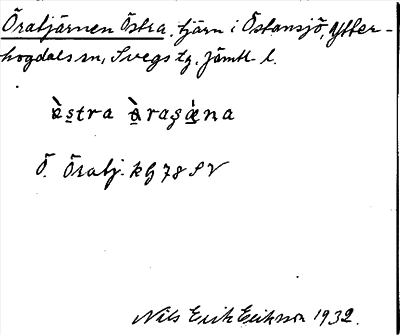 Öratjärnen Östra, tjärn i Östansjö, Ytter-
hogdals sn, Svegs tg. Jämtl. l.
Ö. Öratj. kG 78 SV
Nils Erik Eriksson 1932.